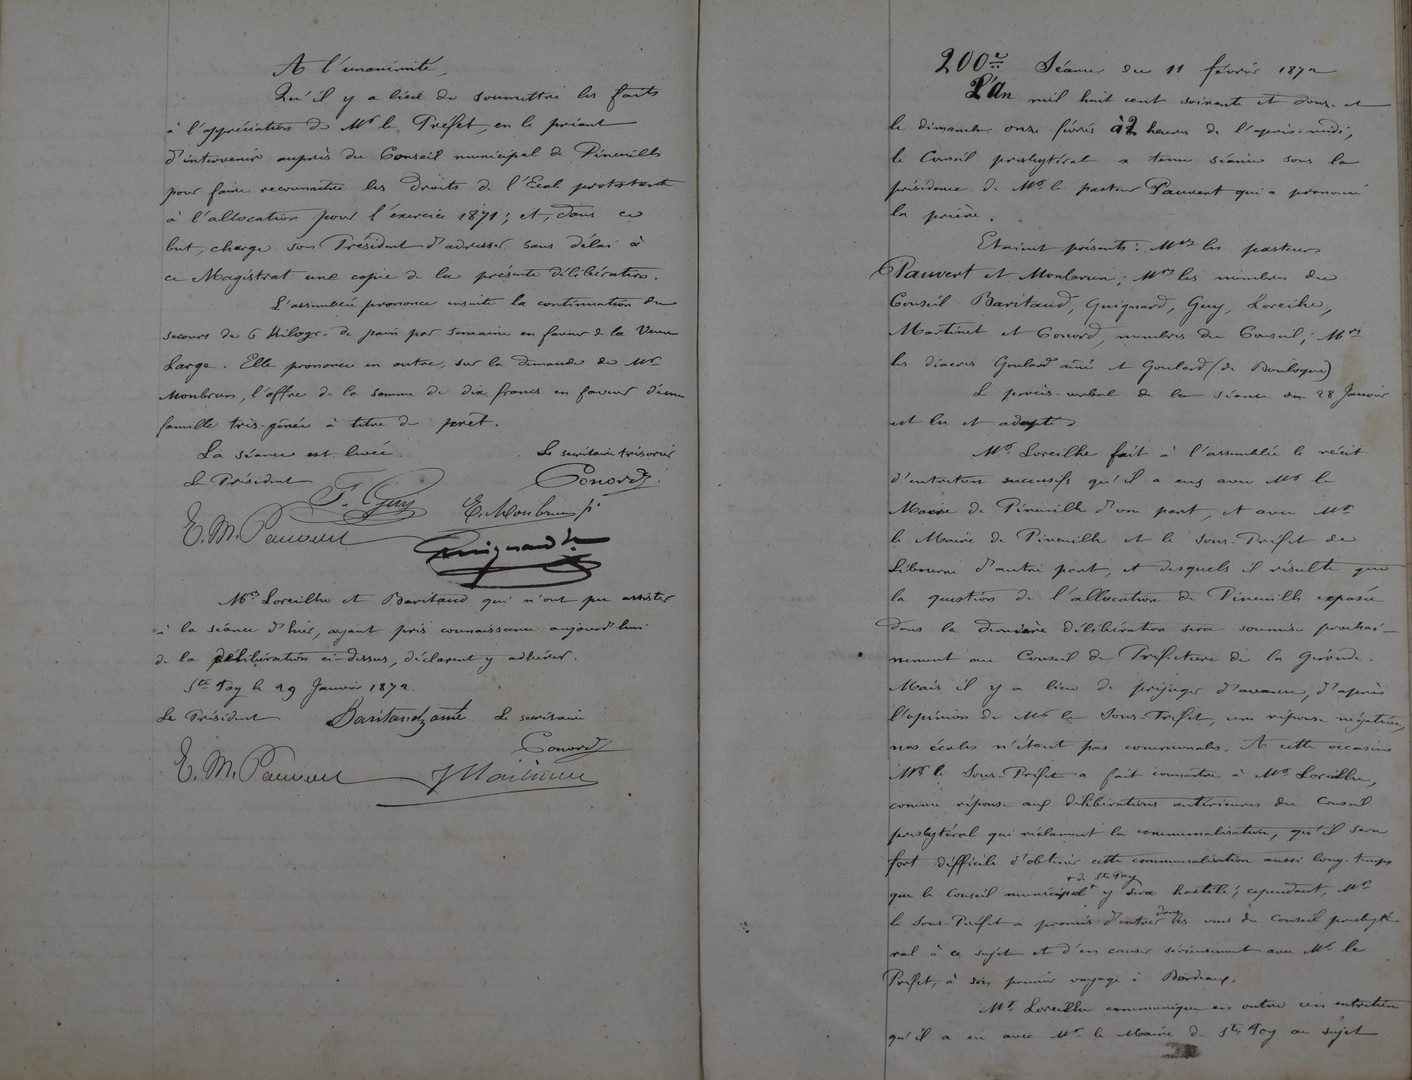 A l'unanimité,
Qu'il y a lieu de soumettre les faits
à l'appréciation de Mr le Préfet, en le priant
d'intervenir auprès du Conseil municipal de Pineuilh
pour faire reconnaître les droits de l'Ecole protestante
à l'allocation pour l'exercice 1871; et, dans ce
but, charge son Président d'adresser sans délai à
ce Magistrat une copie de la présente délibération.
L'assemblée prononce ensuite la continuation du
secours de 6 Kilogr. de pain par semaine en faveur de la Veuve
Large. Elle prononce en outre, sur la demande de Mr
Monbrun, l'offre de la somme de dix francs en faveur d'une
famille très-gênée à titre de prêt.
La séance est levée.
Le secrétaire trésorier
Le Président
Conord
F. Guy
E. Monbrun p.
E. M. Pauvert
Guignard
Mrs Loreilhe et Baritaud qui n'ont pu assister
à la séance d'hier, ayant pris connaissance aujourd'hui
de la délibération ci-dessus, déclarent y adhérer.
Ste Foy le 29 Janvier 1872.
Le Président
Baritaud
Le secrétaire
Conord
E. M. Pauvert
200e Séance du 11 février 1872
L'An mil huit cent soixante et douze et
le dimanche onze février à 2 heures de l'après-midi,
le Conseil presbytéral a tenu séance sous la
présidence de Mr le pasteur Pauvert qui a prononcé
la prière.
Etaient présents: Mrs les pasteurs
Pauvert et Monbrun; Mrs les membres du
Conseil Baritaud, Guignard, Guy, Loreilhe,
Martinet et Conord, membres du Conseil; Mrs
les diacres Goulard aîné et Goulard (de Boulogne)
Le procès-verbal de la séance du 28 Janvier
est lu et adopté
Mr Loreilhe fait à l'assemblée le récit
d'entretiens successifs qu'il a eus avec Mr le
Maire de Pineuilh d'une part, et avec Mr
le Maire de Pineuilh et le Sous-Préfet de
Libourne d'autre part, et desquels il résulte que
la question de l'allocation de Pineuilh exposée
dans la dernière délibération sera soumise prochai-
nement au Conseil de Préfecture de la Gironde.
Mais il y a lieu de préjuger d'avance, d'après
l'opinion de Mr le Sous-Préfet, une réponse négative,
nos écoles n'étant pas communales. A cette occasion
Mr le Sous-Préfet a fait connaître à Mr Loreilhe,
comme réponse aux délibérations antérieures du Conseil
presbytéral qui réclament la communalisation, qu'il sera
fort difficile d'obtenir cette communalisation aussi long-temps
que le Conseil municipal de Ste Foy y sera hostile; cependant, Mr
le Sous-Préfet a promis d'entrer dans les vues du Conseil presbyté-
ral à ce sujet et d'en causer sérieusement avec Mr le
Préfet, à son premier voyage à Bordeaux.
Mr Loreilhe communique en outre un entretien
qu'il a eu avec Mr le Maire de Ste Foy au sujet